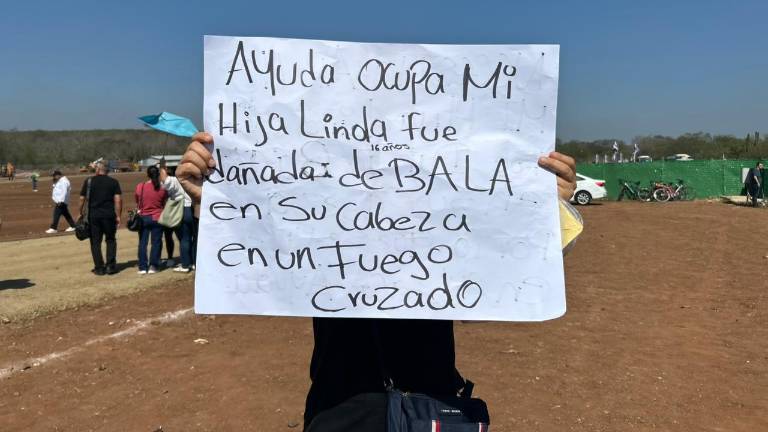 Ayuda Ocupa Mi
Hija Linda fue
16 años
dañada: de BALA
en Su Cabeza
en un Fuego
Cruzado